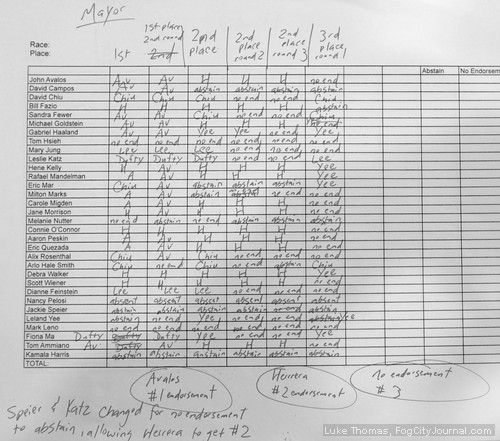 Mayor
Race:
Place:
1st
1st place 2nd round
2nd place
2nd place round 2
2nd place round 3
3rd round
Abstain
No Endorsem
John Avalos Av Av H H H no end
David Campos Av Av abstain abstain abstain abstain
David Chiu Chiu Chiu Chiu no end no end Chiu
Bill Fazio H H H H H abstain
Sandra Fewer Av Av Chiu no end no end Chiu
Michael Goldstein Av Av H H H no end
Gabriel Haaland Av Av Yee Yee no end Yee
Tom Hsieh no end no end no end no end no end no end
Mary Jung Lee Lee Lee no end no end no end
Leslie Katz Dufty Dufty Dufty no end no end Lee
Hene Kelly H Av H H H Yee
Rafael Mandelman A Av H H H Yee
Eric Mar Chiu Av abstain abstain abstain Yee
Milton Marks A Av abstain abstain no end
Carole Migden A Av H H H no end
Jane Morrison A Av H H H no end
Melanie Nutter no end abstain no end abstain abstain abstain
Connie O'Connor H H H H H no end
Aaron Peskin A Av H H H no end
Eric Quezada A Av H H H no end
Alix Rosenthal Chiu Av Chiu no end no end no end
Arlo Hale Smith Chiu no end Chiu no end abstain Chiu
Debra Walker H Av H H H Yee
Scott Wiener H H H H H no end
Dianne Feinstein Lee Lee Lee no end no end no end
Nancy Pelosi absent absent absent absent absent absent
Jackie Speier abstain abstain abstain abstain no end abstain
Leland Yee abstain no end Yee no end no end Yee
Mark Leno no end no end no end no end no end no end
Fiona Ma Dufty Dufty no end Yee no end no end Yee
Tom Ammiano Av Dufty Av H H H no end
Kamala Harris abstain abstain abstain abstain abstain abstain
TOTAL:
Avalos #1 endorsement
Herrera #2 endorsement
no endorsement #3
Speier & Katz changed for no endorsement
to abstain, allowing Herrera to get #2
Luke Thomas, FogCityJournal.com